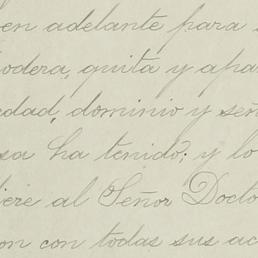 en adelante para
odera, quita y apar
edad, dominio y señ
sa ha tenido; y lo
iere al Señor Docto
on con todas sus ac